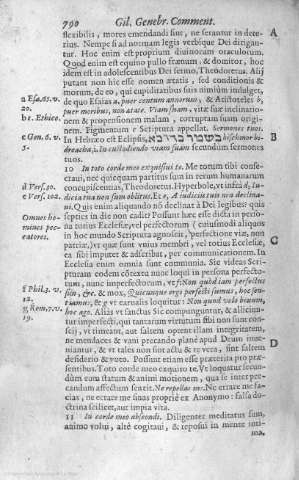 790 Gil. Genebr. Comment.
flexibilis, mores emendandi sint, ne ferantur in dete- A
rius. Nempe si ad normam legis verbique Dei dirigan-
tur. Hoc enim est proprium divinorum oraculorum.
Quod enim est equino pullo frænum, & domitor, hoc
idem est in adolescentibus Dei sermo, Theodoretus. Alij
putant non hîc esse nomen ætatis, sed conditionis &
morum, de eo, qui cupiditatibus suis nimium indulget,
a Esa. 65. v. 20. de quo Esaias a, puer centum annorum, & Aristoteles b,
puer moribus, non ætate. Viam suam, vitæ suæ inclinatio-
b 1. Ethic. nem & propensionem malam, corruptam suam origi-
nem. Figmentum c Scriptura appellat. Sermones tuos.
c Gen. 6. v. 5. In Hebræo est Eclipsis, B
i. In custodiendo viam suam secundum sermones
tuos.
10 In toto corde meo exquisivi te. Me totum tibi conse-
crati, nec quicquam partitus sum in rerum humanarum
d Vers. 30. concupiscentias, Theodoretus. Hyperbole, vt infrà d, Iu-
e Vers. 102. dicia tua non sum oblitus, Et, e, A iudiciis tuis non declina-
ui. Quis enim aliquando nō declinat à Dei legibus? quis
Omnes ho- septies in die non cadit? Possunt hæc esse dicta in perso-
mines pec- na totius Ecclesiæ, vel perfectorum (eiusmodi aliquos
catores. in hoc mundo Scriptura agnoscit, perfectione viæ, non
patriæ,) vt quæ sunt vnius membri, vel totius Ecclesiæ, C
ea sibi imputet & adscribat, per communicationem. In
Ecclesia enim omnia sunt communia. Sic videas Scri-
pturam eodem cōtextu nunc loqui in persona perfecto-
rum, nunc imperfectorum, vt f: Non quòd iam perfectus
f Phil. 3. v. 12. sim, &c. & mox, Quicunque ergo perfecti sumus, hoc sen-
tiamus; & g vt carnalis loquitur: Non quod volo bonum,
g Rom. 7. v. 19. hoc ago. Alias vt sanctus Sic compunguntur, & afficiun-
tur imperfecti, qui tantarum virtutum sibi non sunt con-
scij, vt timeant, aut saltem operent illam integritatem,
ne mendaces & vani precando planè apud Deum inue-
niantur, & vt tales non sint actu & re vera, sint saltem D
desiderio & voto. Possunt etiam esse præterita pro præ-
sentibus. Toto corde meo exquiro te. Vt loquatur secun-
dùm eorum statum & animi motionem, qua se inter pre-
candum affectum sentit. Ne repellas me. Ne errare me fa-
cias, ne errare me sinas propriè ex Anonymo: falsa do-
ctrina scilicet, aut impia vita.
11 In corde meo abscondi. Diligenter meditatus sum,
animo volui, altè cogitaui, & reposui in mente inti-
ma,